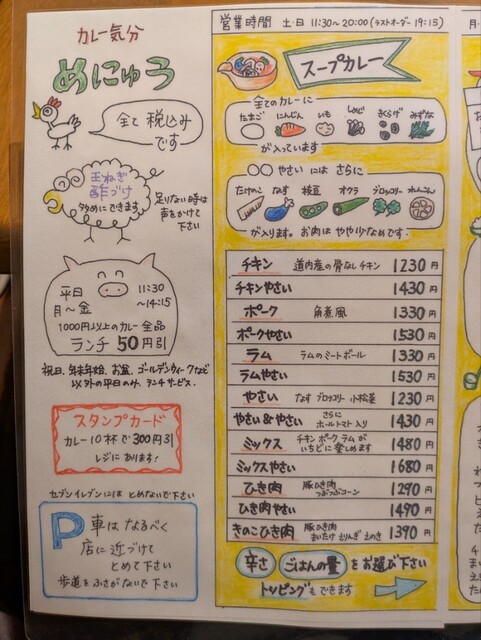 カレー気分
めにゅう
全て税込み
です
玉ねぎ
酢づけ
多めにできます
足りない時は
声をかけて
下さい
平日
月〜金
11:30
〜14:15
1000円以上のカレー全品
ランチ 50円引
祝日、年末年始、お盆、ゴールデンウィークなど
以外の平日のみ、ランチサービス。
スタンプカード
カレー10杯で300円引
レジにあります!
セブンイレブンには とめないで下さい
P 車は なるべく
店に近づけて
とめて下さい
歩道をふさがないで下さい
営業時間 土・日 11:30〜20:00(ラストオーダー 19:15)
スープカレー
全てのカレーに
たまご にんじん いも しめじ きくらげ みずな
が入っています
○○やさい には さらに
たけのこ なす 枝豆 オクラ ブロッコリー れんこん
が入ります。お肉は やや少なめです。
チキン 道内産の骨なしチキン 1230円
チキンやさい 1430円
ポーク 角煮風 1330円
ポークやさい 1530円
ラム ラムのミートボール 1330円
ラムやさい 1530円
やさい なす ブロッコリー 小松菜 1230円
やさい&やさい さらに ホールトマト入り 1430円
ミックス チキン ポーク ラムが いちどに楽しめます 1480円
ミックスやさい 1680円
ひき肉 豚ひき肉 つぶつぶコーン 1290円
ひき肉やさい 1490円
きのこひき肉 豚ひき肉 まいたけ えりんぎ えのき 1390円
辛さ ごはんの量 をお選び下さい
トッピングもできます
月